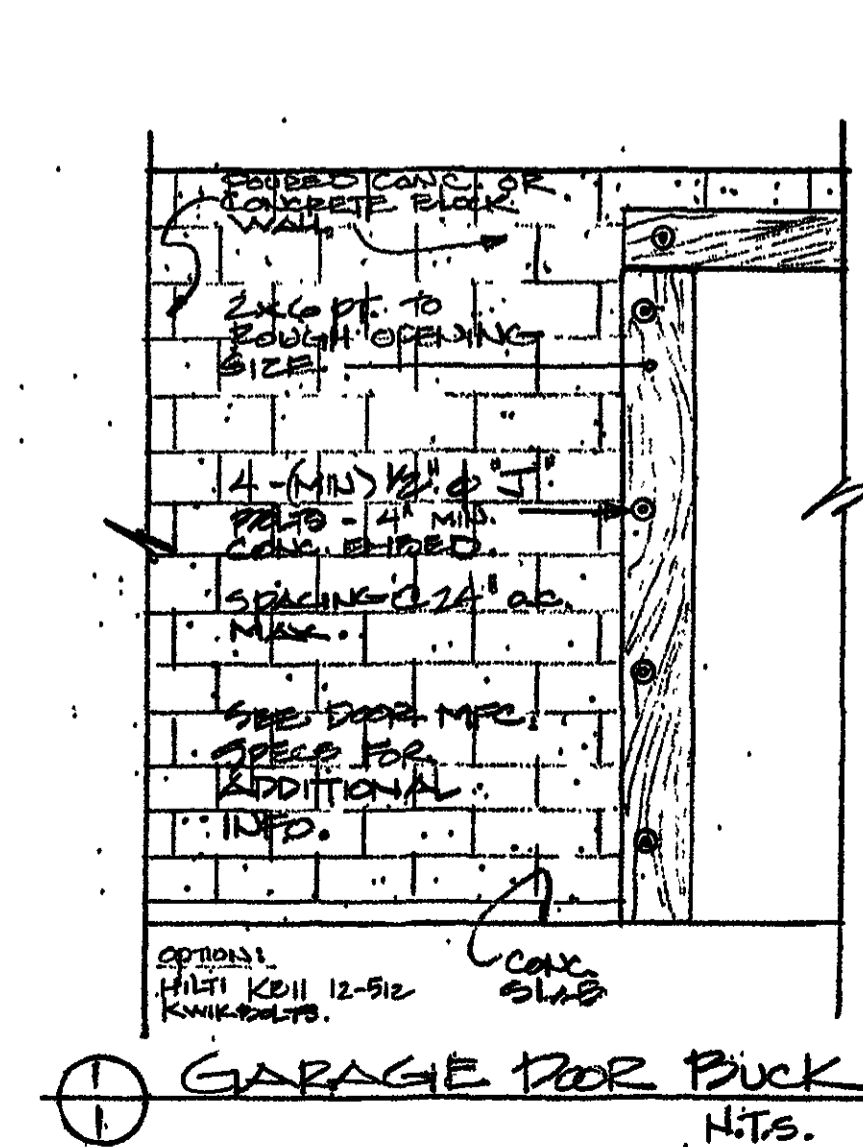 POURED CONC. OR
CONCRETE BLOCK
WALL
2x6 PT. TO
ROUGH OPENING
SIZE
4-(MIN) 1/2" ⌀ "J"
BOLTS - 4" MIN.
CONC. EMBED.
SPACING @ 24" O.C.
MAX.
SEE DOOR MFG.
SPECS FOR
ADDITIONAL
INFO.
OPTION:
HILTI KBII 12-512
KWIK BOLTS.
CONC.
SLAB
1
1
GARAGE DOOR BUCK
N.T.S.